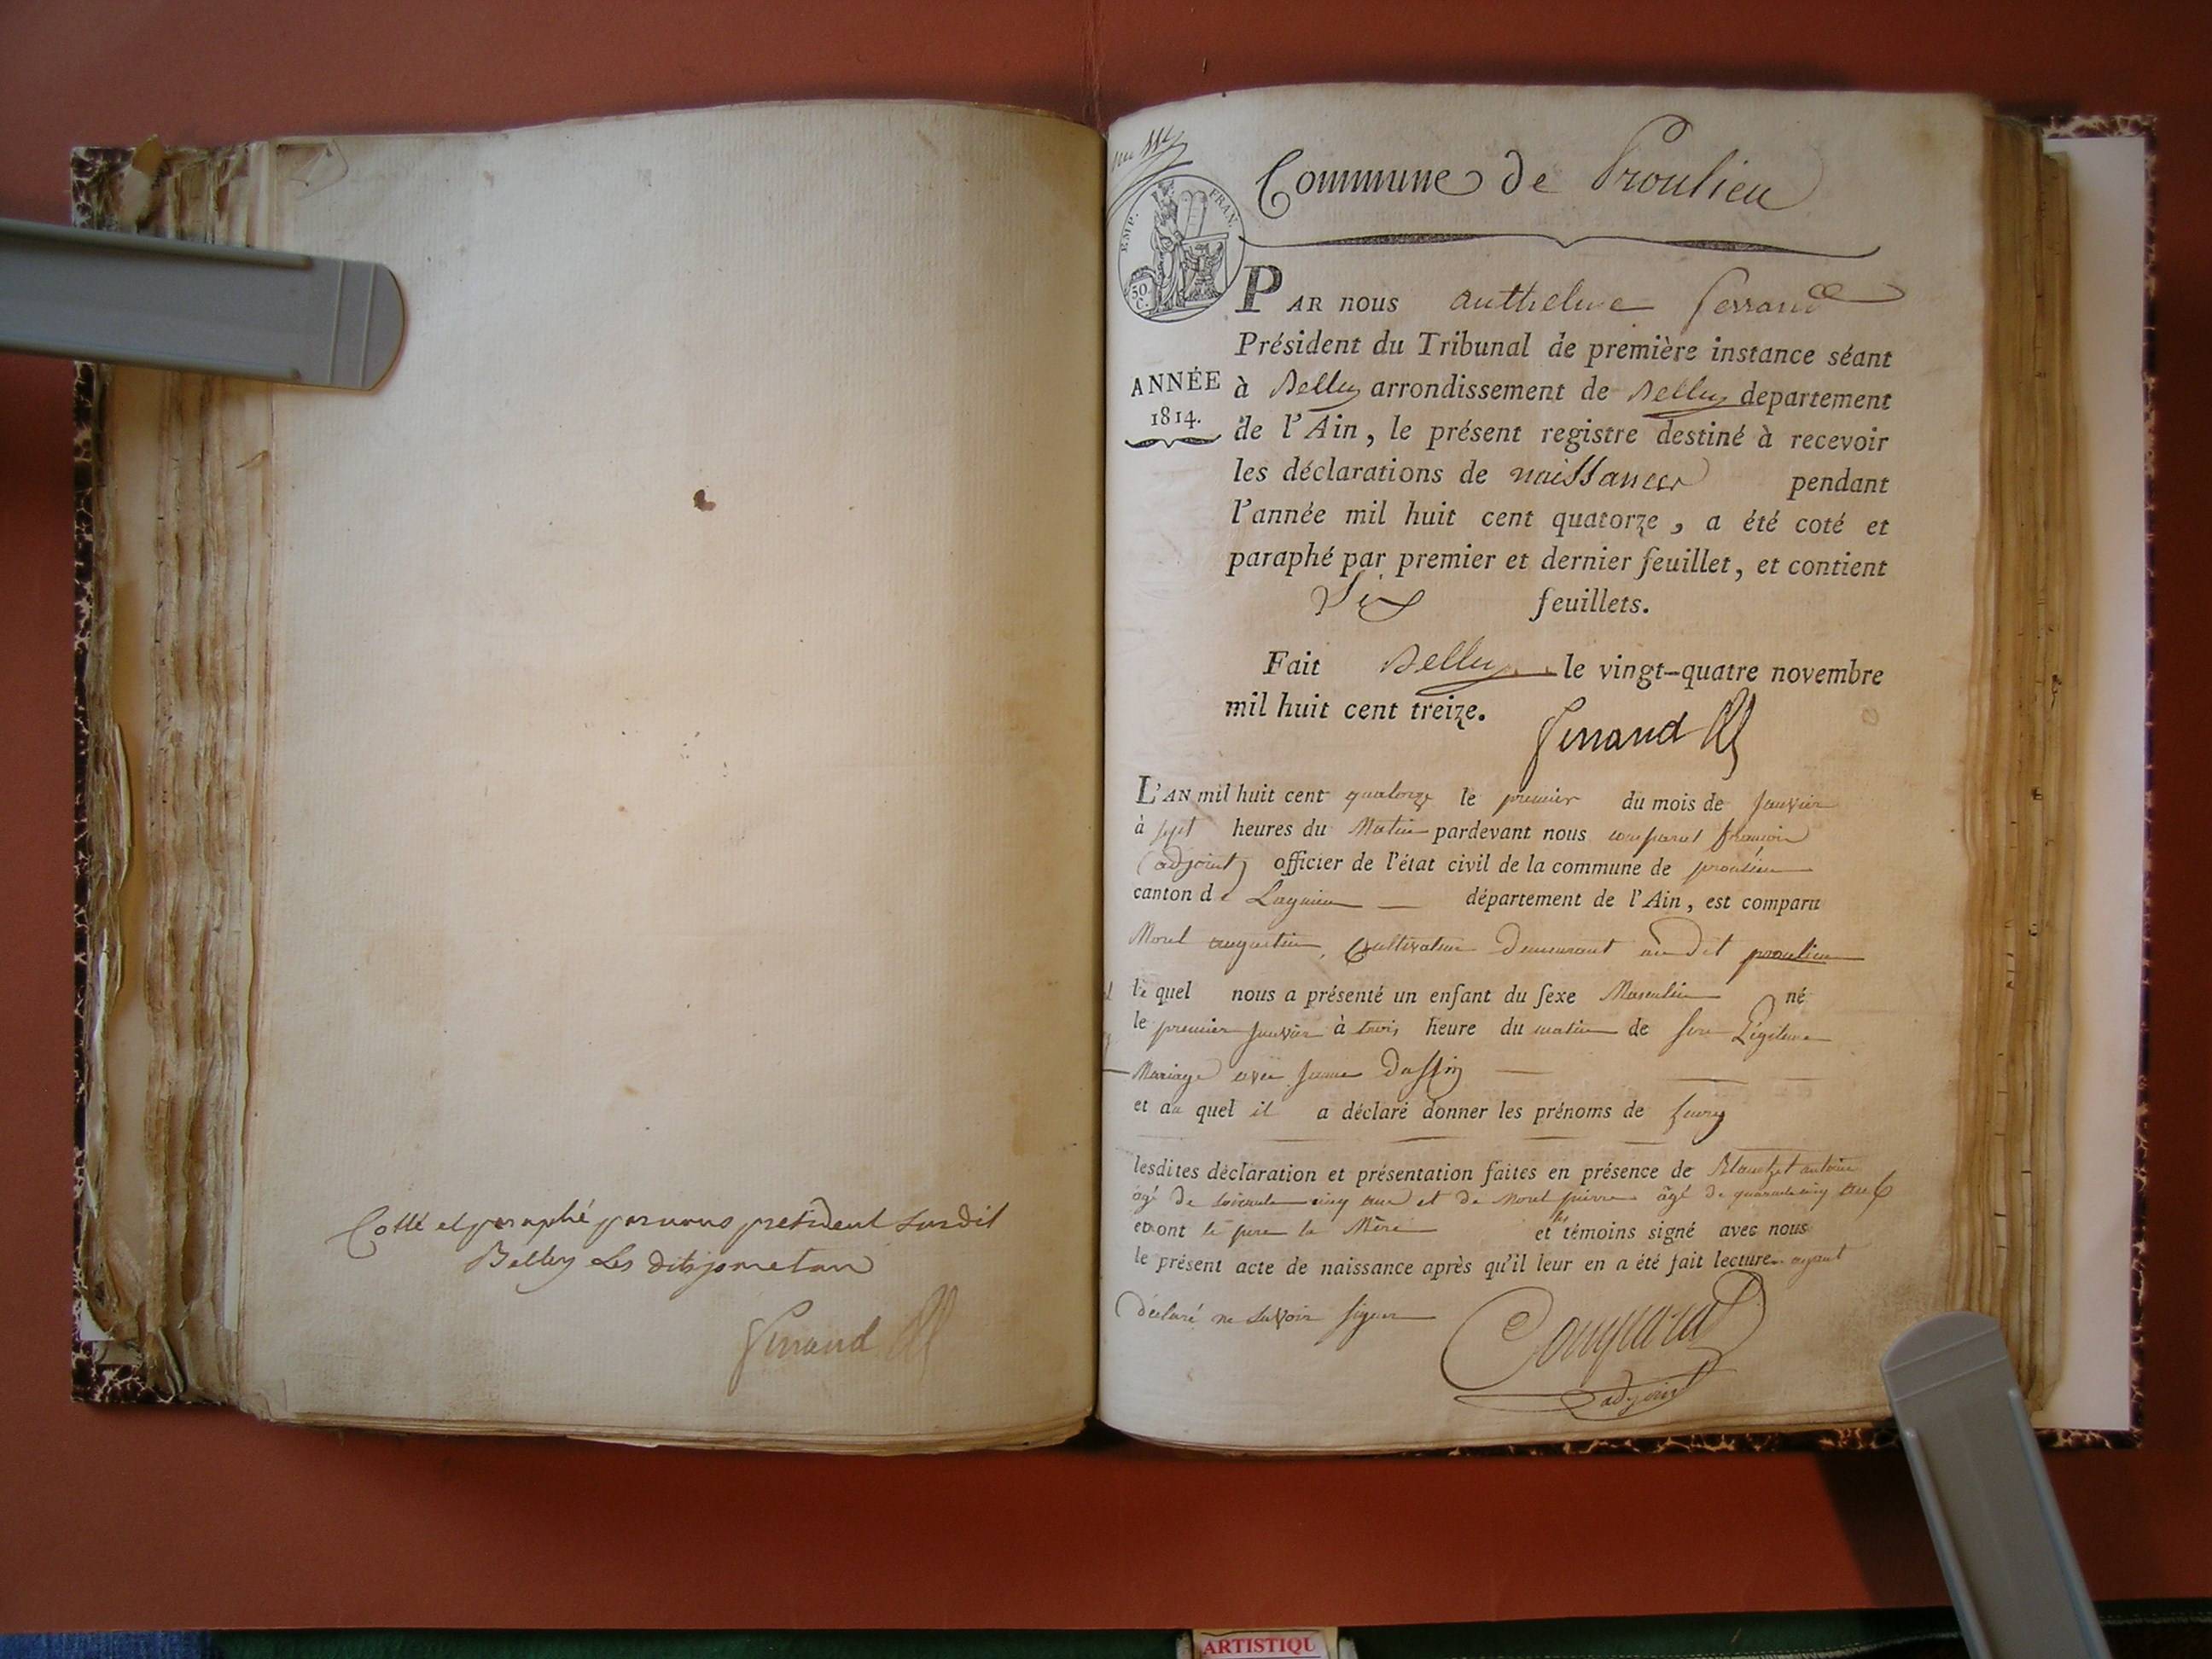 Collé et paraphé par nous président susdit
Belley les dits jour et an
Ferrand
Commune de Proulieu
EMP. FRAN.
50 C.
PAR nous Anthelme Ferrand
Président du Tribunal de première instance séant
ANNÉE
1814.
à Belley arrondissement de Belley departement
de l'Ain, le présent registre destiné à recevoir
les déclarations de naissances pendant
l'année mil huit cent quatorze, a été coté et
paraphé par premier et dernier feuillet, et contient
Six feuillets.
Fait Belley le vingt-quatre novembre
mil huit cent treize.
Ferrand
L'AN mil huit cent quatorze le premier du mois de Janvier
à sept heures du Matin pardevant nous françois
(adjoint) officier de l'état civil de la commune de proulieu
canton de Lagnieu département de l'Ain, est comparu
Morel augustin, Cultivateur demeurant au dit proulieu
le quel nous a présenté un enfant du sexe Masculin né
le premier Janvier à trois heure du matin de son Légitime
Mariage avec
et au quel il a déclaré donner les prénoms de
lesdites déclaration et présentation faites en présence de antoine
âgé de soixante cinq ans et de Morel pierre âgé de quarante cinq ans
et ont le pere la Mère et les témoins signé avec nous
le présent acte de naissance après qu'il leur en a été fait lecture ayant
déclaré ne savoir signer
adjoint
ARTISTIQU